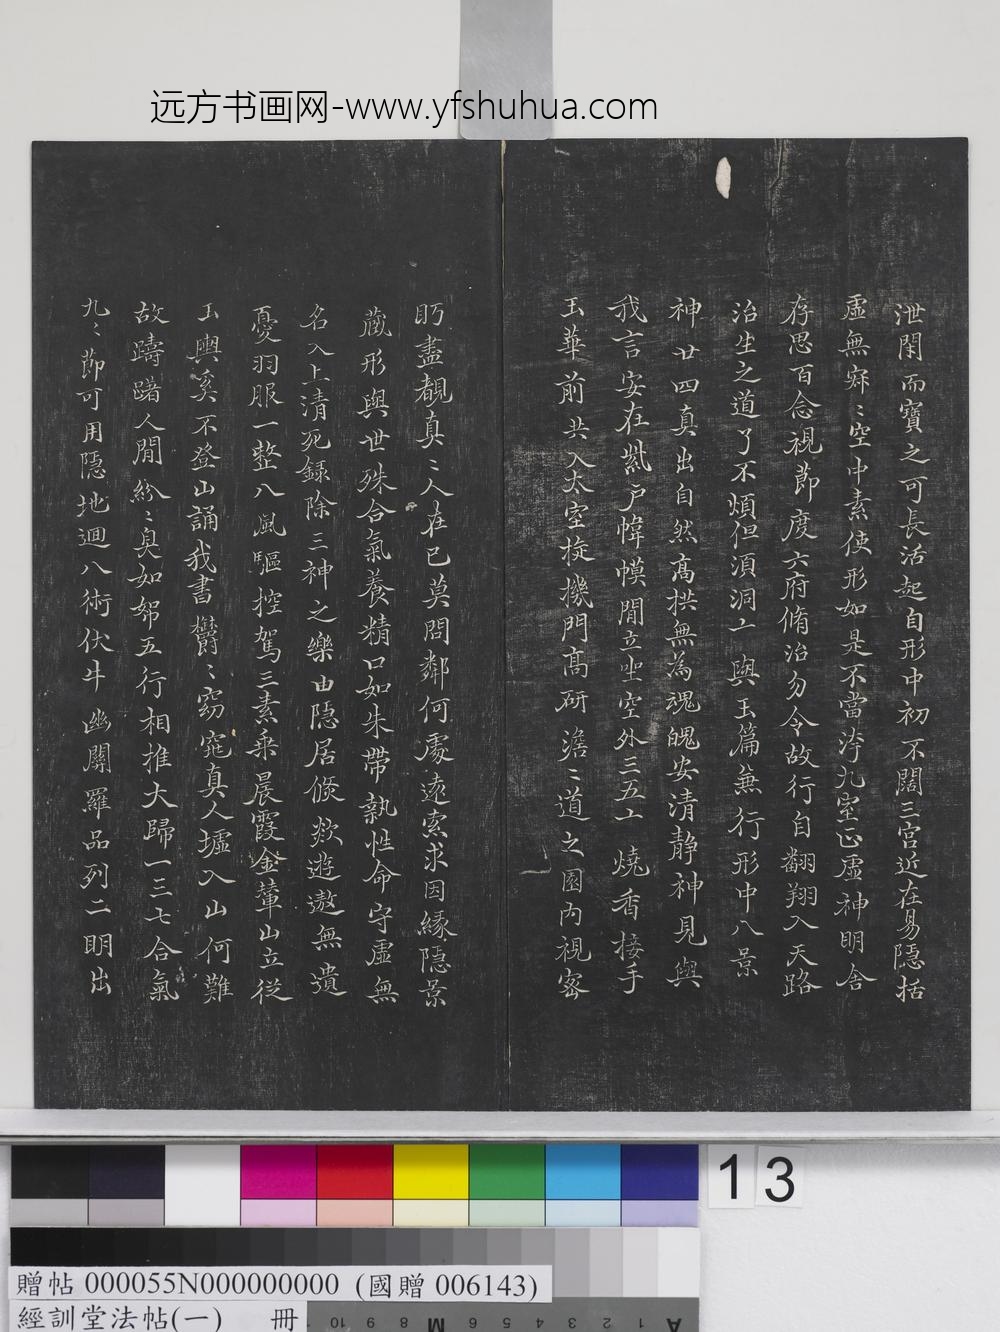 远方书画网-www.yfshuhua.com
泄閑而寶之可長活起自形中初不闊三宮近在易隱括
虛無寂〻空中素使形如是不當汚九室正虛神明舍
存思百念視節度六府脩治勿令故行自翱翔入天路
治生之道了不煩但須洞玄與玉篇兼行形中八景
神廿四真出自然高拱無為魂魄安清静神見與
我言安在紫戶幃幙閒立坐室外三五玄燒香接手
玉華前共入太室捘機門高研澹〻道之園内視密
眄盡覩真〻人在己莫問鄰何處遠索求因緣隱景
藏形與世殊合氣養精口如朱帶執性命守虛無
名入上清死録除三神之樂由隱居倏欻遊遨無遺
憂羽服一整八風驅控駕三素乘晨霞金輦山立從
玉輿奚不登山誦我書欝〻窈窕真人墟入山何難
故躊躇人閒紛〻臭如帤五行相推大歸一三七合氣
九〻節可用隱地迴八術伏牛幽闕羅品列二明出
13
贈帖 000055N000000000 (國贈 006143)
經訓堂法帖(一) 冊